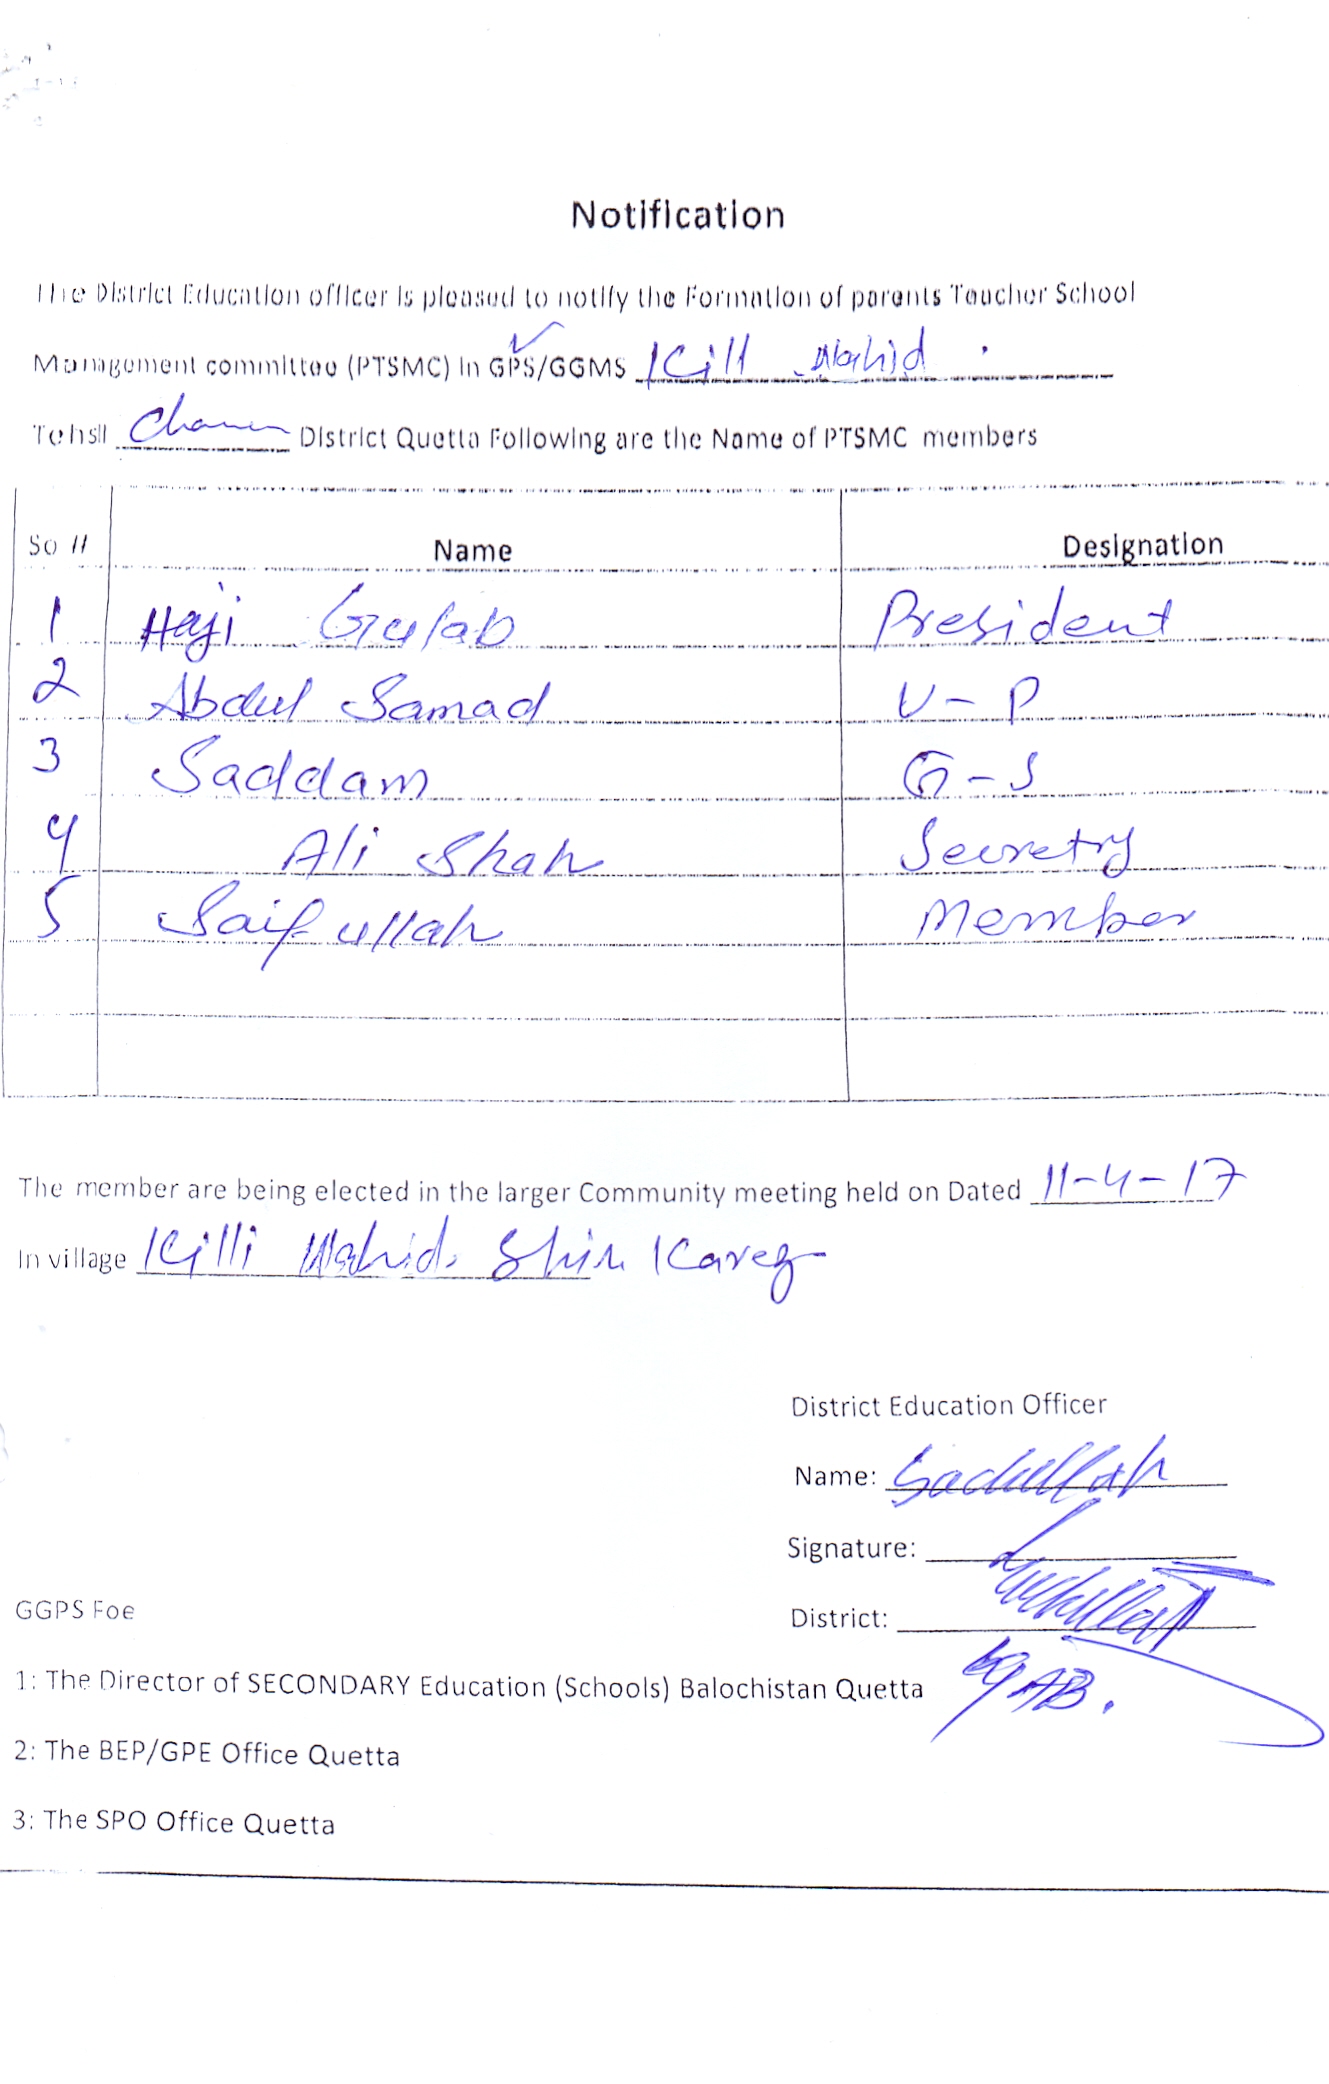 Notification
The District Education officer is pleased to notify the Formation of parents Teacher School
Management committee (PTSMC) In GPS/GGMS Kill Wahid
Tehsil Chaman District Quetta Following are the Name of PTSMC members
So # Name Designation
1 Haji Gulab President
2 Abdul Samad V-P
3 Saddam G-S
4 Ali Shah Secretry
5 Saif ullah Member
The member are being elected in the larger Community meeting held on Dated 11-4-17
In village Killi Wahid Shin Karez
District Education Officer
Name: Sadullah
Signature:
District:
GGPS Foe
1: The Director of SECONDARY Education (Schools) Balochistan Quetta
2: The BEP/GPE Office Quetta
3: The SPO Office Quetta